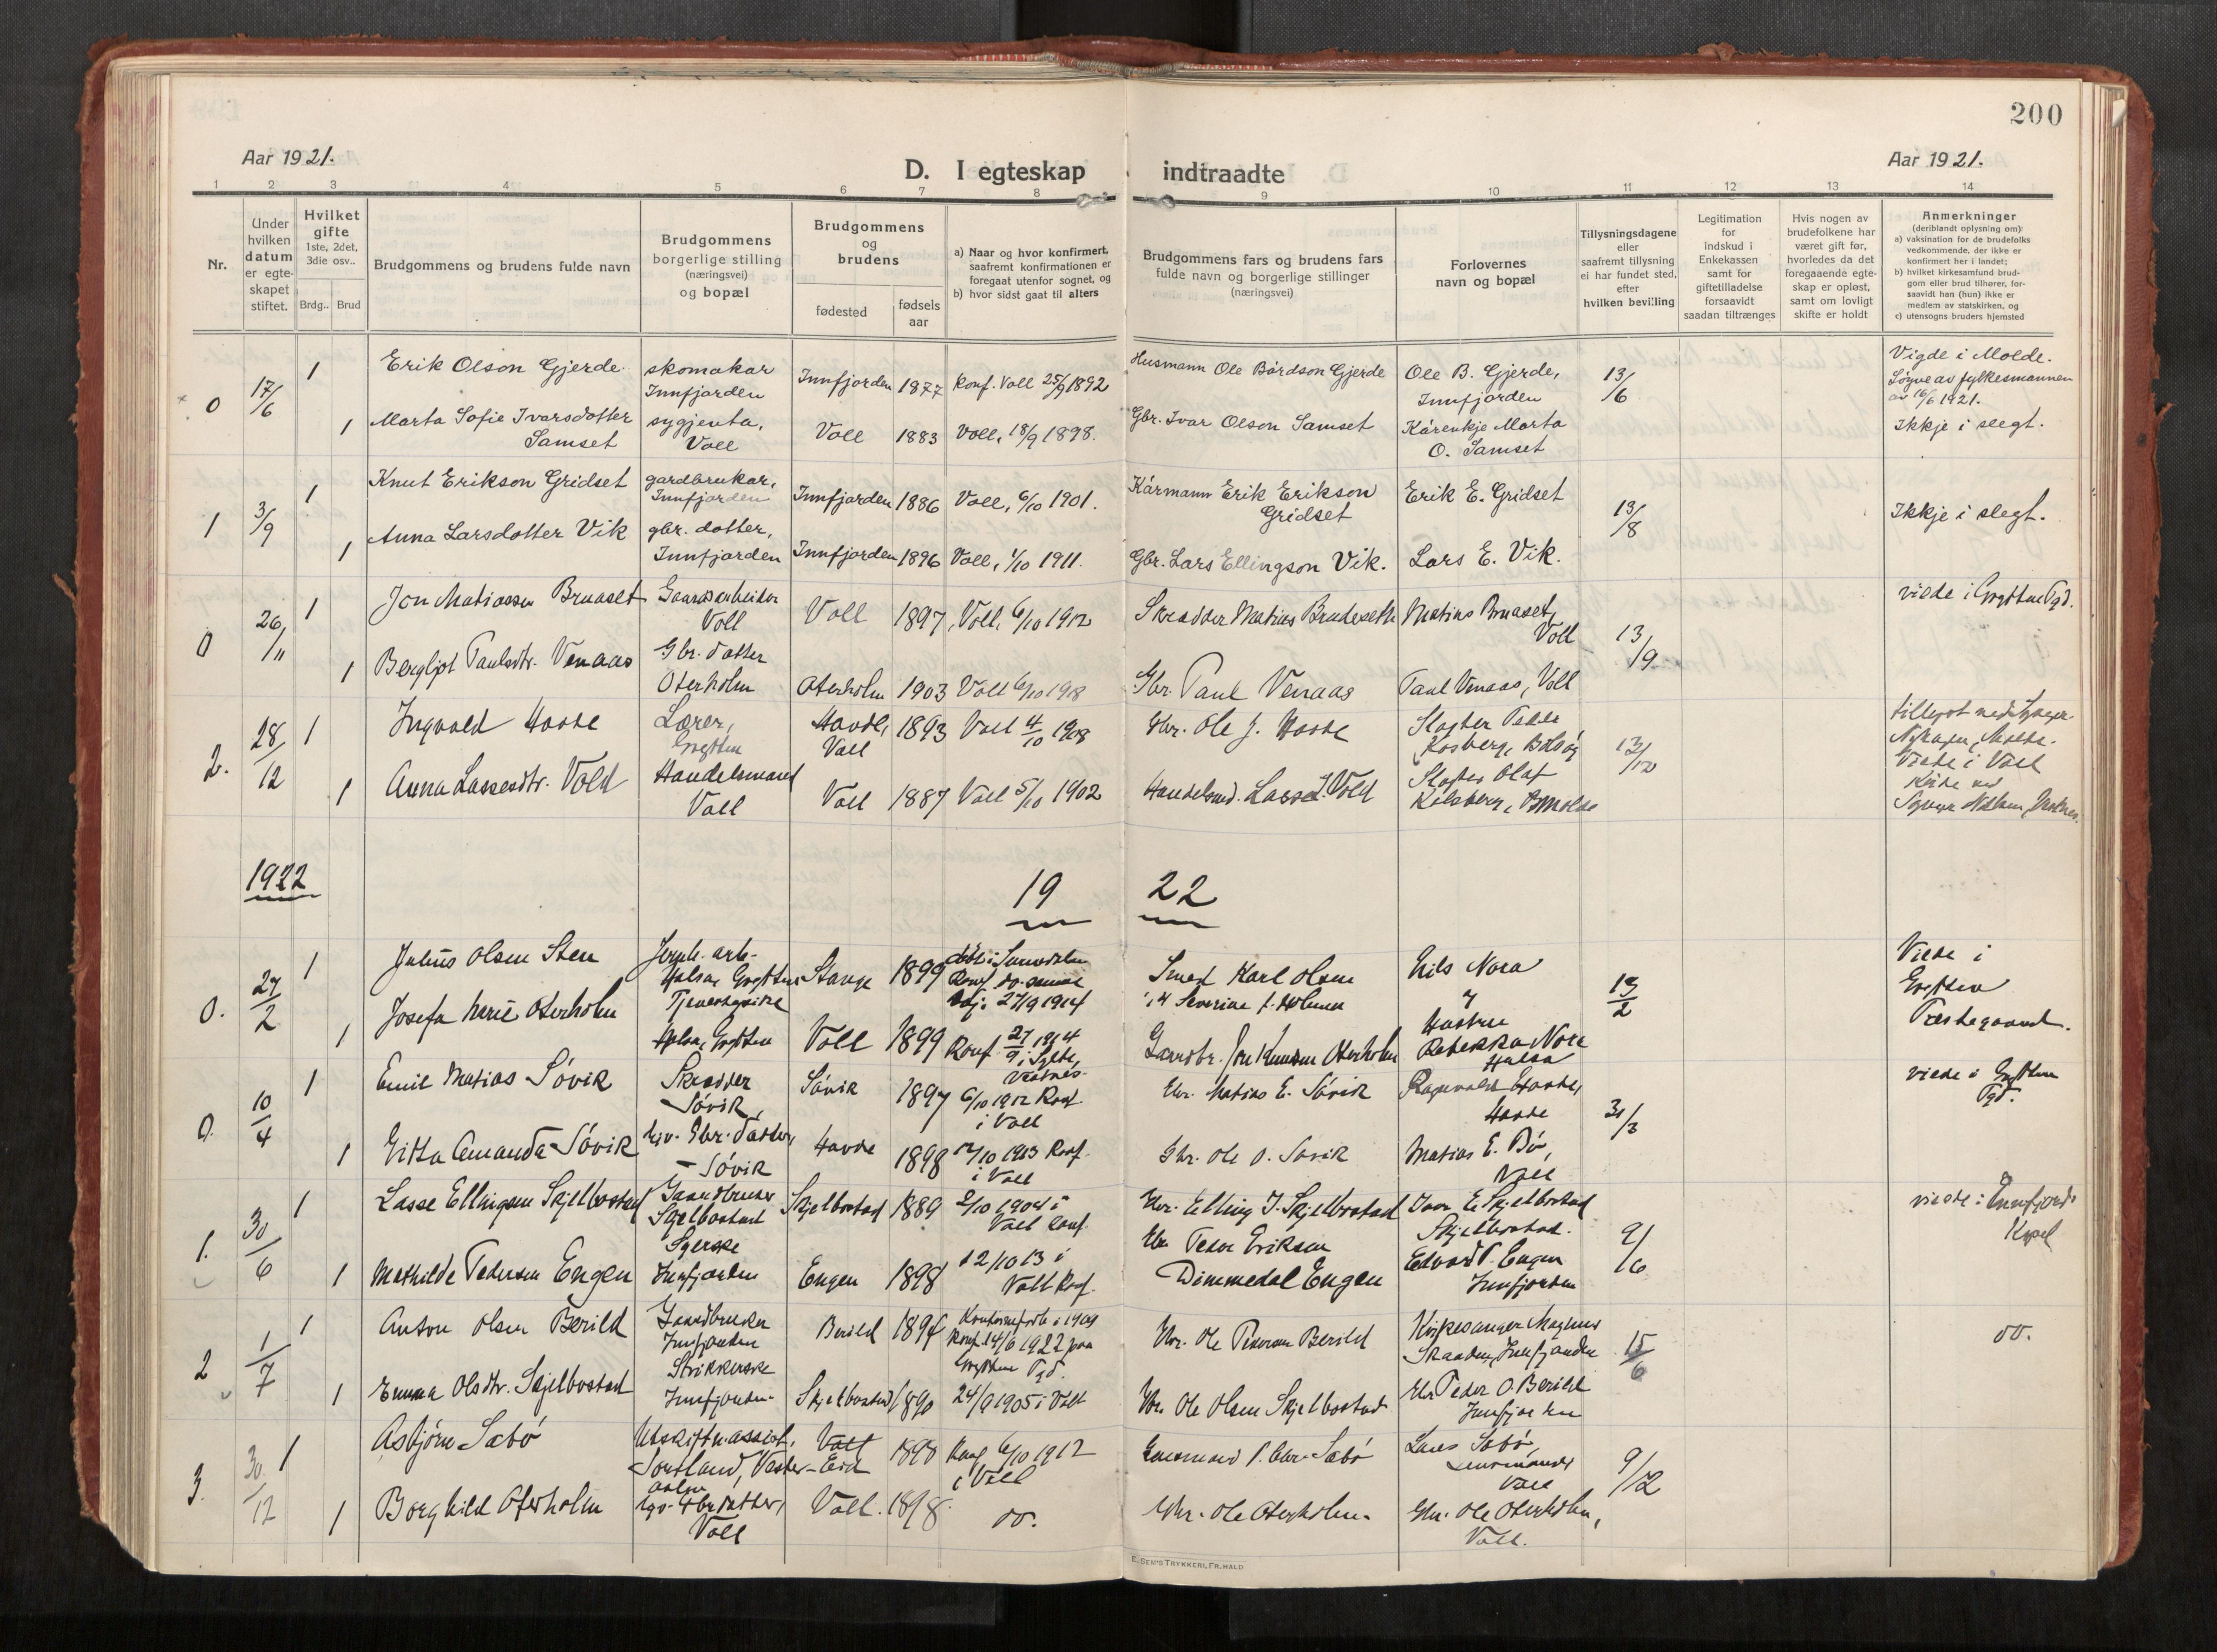 200
Aar 1921.
D. I egteskap indtraadte
Aar 1921.
1 2 3 4 5 6 7 8 9 10 11 12 13 14
Nr.
Under hvilken datum er egteskapet stiftet.
Hvilket gifte 1ste, 2det, 3die osv..
Brdg.. Brud
Brudgommens og brudens fulde navn
Brudgommens borgerlige stilling (næringsvei) og bopæl
Brudgommens og brudens
fødested
fødsels aar
a) Naar og hvor konfirmert, saafremt konfirmationen er foregaat utenfor sognet, og
b) hvor sidst gaat til alters
Brudgommens fars og brudens fars fulde navn og borgerlige stillinger (næringsvei)
Forlovernes navn og bopæl
Tillysningsdagene eller saafremt tillysning ei har fundet sted, efter hvilken bevilling
Legitimation for indskud i Enkekassen samt for giftetilladelse forsaavidt saadan tiltrænges
Hvis nogen av brudefolkene har været gift før, hvorledes da det foregaaende egteskap er opløst, samt om lovligt skifte er holdt
Anmerkninger (deriblandt oplysning om):
a) vaksination for de brudefolks vedkommende, der ikke er konfirmert her i landet;
b) hvilket kirkesamfund brudgom eller brud tilhører, forsaavidt han (hun) ikke er medlem av statskirken, og
c) utensogns bruders hjemsted
0 17/6 1 Erik Olson Gjerde skomakar Innfjorden Innfjorden 1877 Konf. Voll 25/9 1892 Husmann Ole Bårdson Gjerde Ole B. Gjerde, Innfjorden 13/6 Vigde i Molde. Løyve av fylkesmannen av 16/6 1921.
1 Marta Sofie Ivarsdotter Samset sygjenta, Voll Voll 1883 Voll, 18/9 1898. Gbr. Ivar Olson Samset Kårenkje Marta O. Samset Ikkje i slegt.
1 3/9 1 Knut Erikson Gridset gardbrukar, Innfjorden Innfjorden 1886 Voll, 6/10 1901. Kårmann Erik Erikson Gridset Erik E. Gridset 13/8 Ikkje i slegt.
1 Anna Larsdotter Vik gbr. dotter, Innfjorden Innfjorden 1896 Voll, 1/10 1911. Gbr. Lars Ellingson Vik. Lars E. Vik.
0 26/11 1 Jon Matiassen Bruaset Gaardsarbeider Voll Voll 1897 Voll, 6/10 1912 Skrædder Matias Brudeseth Matias Bruaset, Voll 13/9 viede i Grytten Pgd.
1 Bergljot Paulsdtr. Venaas Gbr. datter Oterholm Oterholm 1903 Voll 6/10 1918 Gbr. Paul Venaas Paul Venaas, Voll
2. 28/12 1 Ingvald Hovde Lærer, Grytten Hovde, Voll 1893 Voll 4/10 1908 Gbr. Ole J. Hovde Slagter Peder 13/12 Viede i Voll Kirke ved
1 Anna Lassesdtr. Vold Handelsmand Voll Voll 1887 Voll 5/10 1902 Handelsmd. Lasse Vold Slagter Olaf
1922
19 22
0. 27/2 1 Julius Olsen Sten Grytten Stange 1899 27/9 1914 Smed Karl Olsen Nils Nora 19/2 Viede i Grytten Prestegaard.
1 Josefa Marie Oterholm Tjenestepike Grytten Voll 1899 Konf 27/9 1914 Gaardbr. Jon Knutsen Oterholm Hustru Rebekka Nora
0. 10/4 1 Emil Matias Sövik Skrædder Sövik, Sövik 1897 6/10 1912 Konf. i Voll Gbr. Matias E. Sövik Ragnvald Hovde, Hovde 31/3 viede i Grytten Pgd.
1 Gitta Amanda Sövik Gbr. datter, Sövik Hovde 1898 12/10 1913 Konf. i Voll Gbr. Ole O. Sövik Matias E. Bö, Voll
1. 30/6 1 Lasse Ellingsen Skjelbostad Gaardbruker Skjelbostad Skjelbostad 1889 2/10 1904 i Voll Konf. Gbr. Elling I. Skjelbostad Ivar E. Skjelbostad Skjelbostad. 9/6 viede i Innfjord Kapel
1 Mathilde Pedersen Engen Syerske Innfjorden Engen 1898 12/10 13 i Voll Konf. Gbr Peder Eriksen Dimmedal Engen Edvard P. Engen Innfjorden
2 1/7 1 Anton Olsen Berild Gaardbruker Innfjorden Berild 1894 Konf. 14/6 1922 paa Grytten Pgd. Gbr. Ole Pedersen Berild Kirkesanger Magnus Innfjorden 15/6 do.
1 Emma Olsdtr. Skjelbostad Strikkerske Innfjorden Skjelbostad 1890 24/9 1905 i Voll Gbr Ole Olsen Skjelbostad Gbr Peder O. Berild Innfjorden
3. 30/12 1 Asbjörn Sæbö Utskiftn. assist. Sortland, Vesteraalen Voll Eid 1898 Konf 6/10 1912 i Voll Lensmand Sæbö Lars Sæbö, Lensmand Voll 9/12
1 Borghild Oterholm Gbr. datter, Voll Voll. 1898 do. Gbr. Ole Oterholm. Gbr. Ole Oterholm, Voll.
E. SEM'S TRYKKERI, FR. HALD